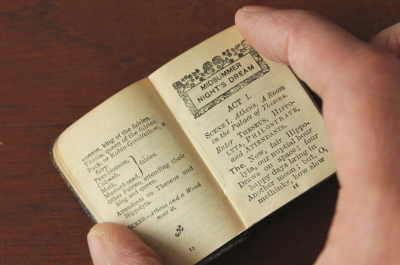 OBERON, king of the fairies.
TITANIA, queen of the fairies.
PUCK, or Robin-Goodfellow, a
fairy.
Peas-blossom,
Cobweb,
Moth,
Mustard-seed,
fairies.
Other Fairies, attending their
king and queen.
Attendants on Theseus and
Hippolyta.
SCENE—Athens and a Wood
near it.
MIDSUMMER
NIGHT'S DREAM
ACT I.
SCENE I. Athens. A Room
in the Palace of Theseus.
Enter THESEUS, HIPPO-
LYTA, PHILOSTRATE,
and ATTENDANTS.
The. Now, fair Hippo-
lyta, our nuptial hour
Draws on apace; four
happy days bring in
Another moon; but, O,
methinks, how slow